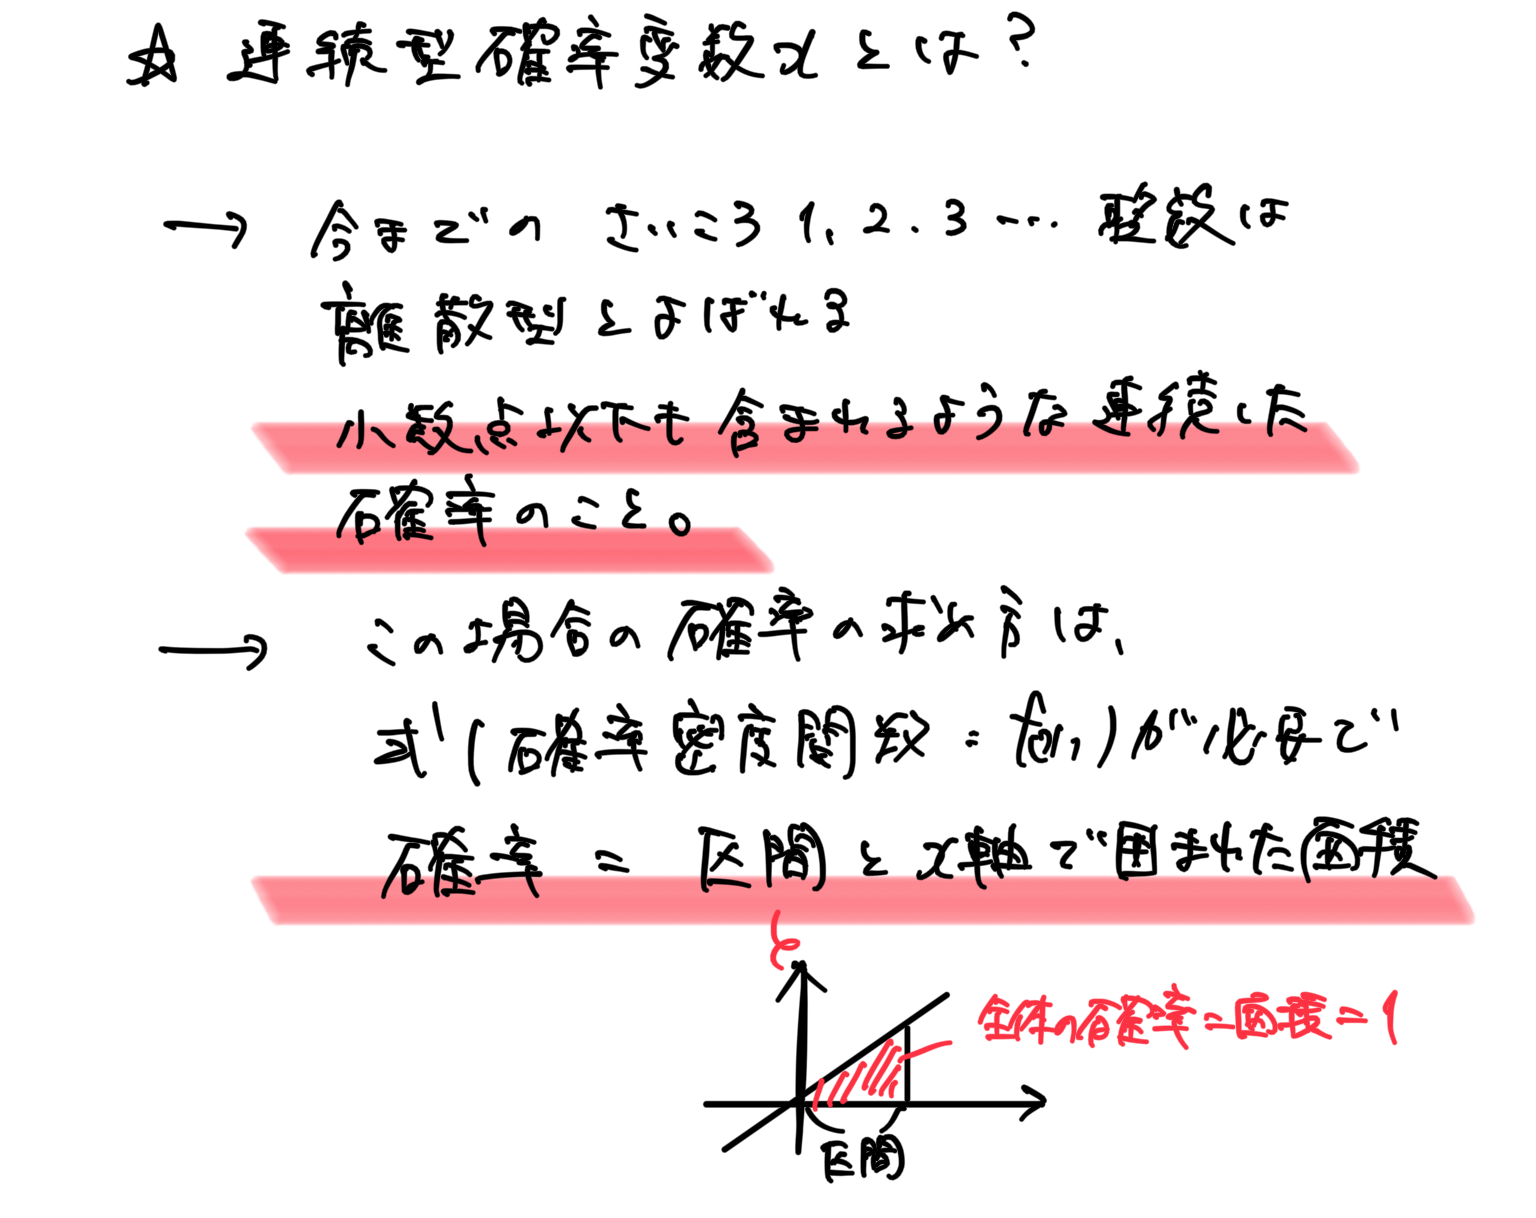 ☆ 連続型確率変数xとは?
→ 今までの さいころ 1, 2. 3 … 整数は
離散型とよばれる
小数点以下も含まれるような連続した
確率のこと。
→ この場合の確率の求め方は、
式(確率密度関数 = f(x))が必要で
確率 = 区間とx軸で囲まれた面積
全体の確率=面積=1
区間